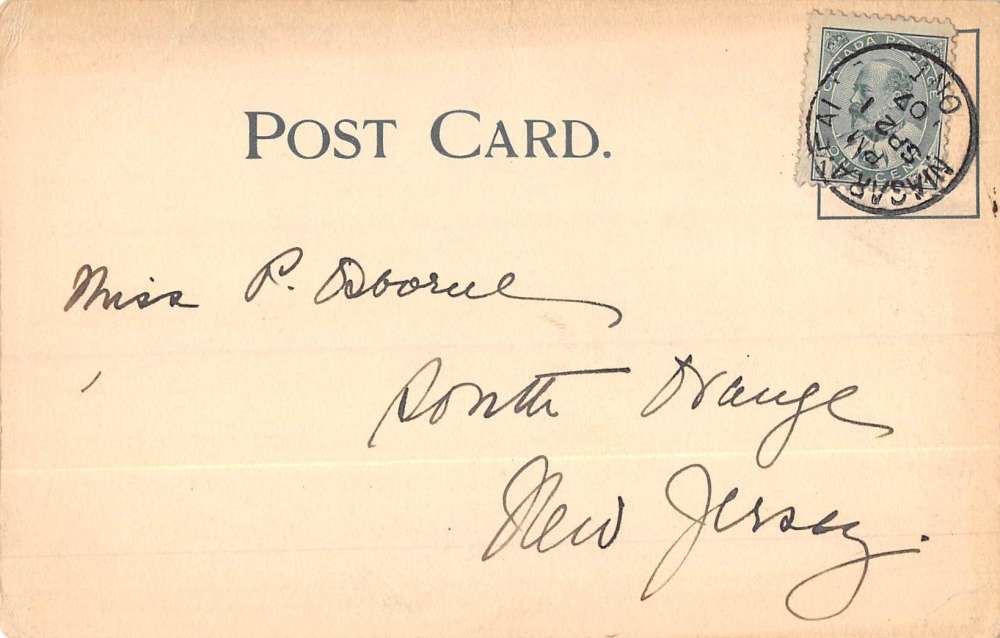 POST CARD.
CANADA POSTAGE
ONE CENT
NIAGARA
PM
SP 2
07
ONT
Miss P. Osborne
South Orange
New Jersey.